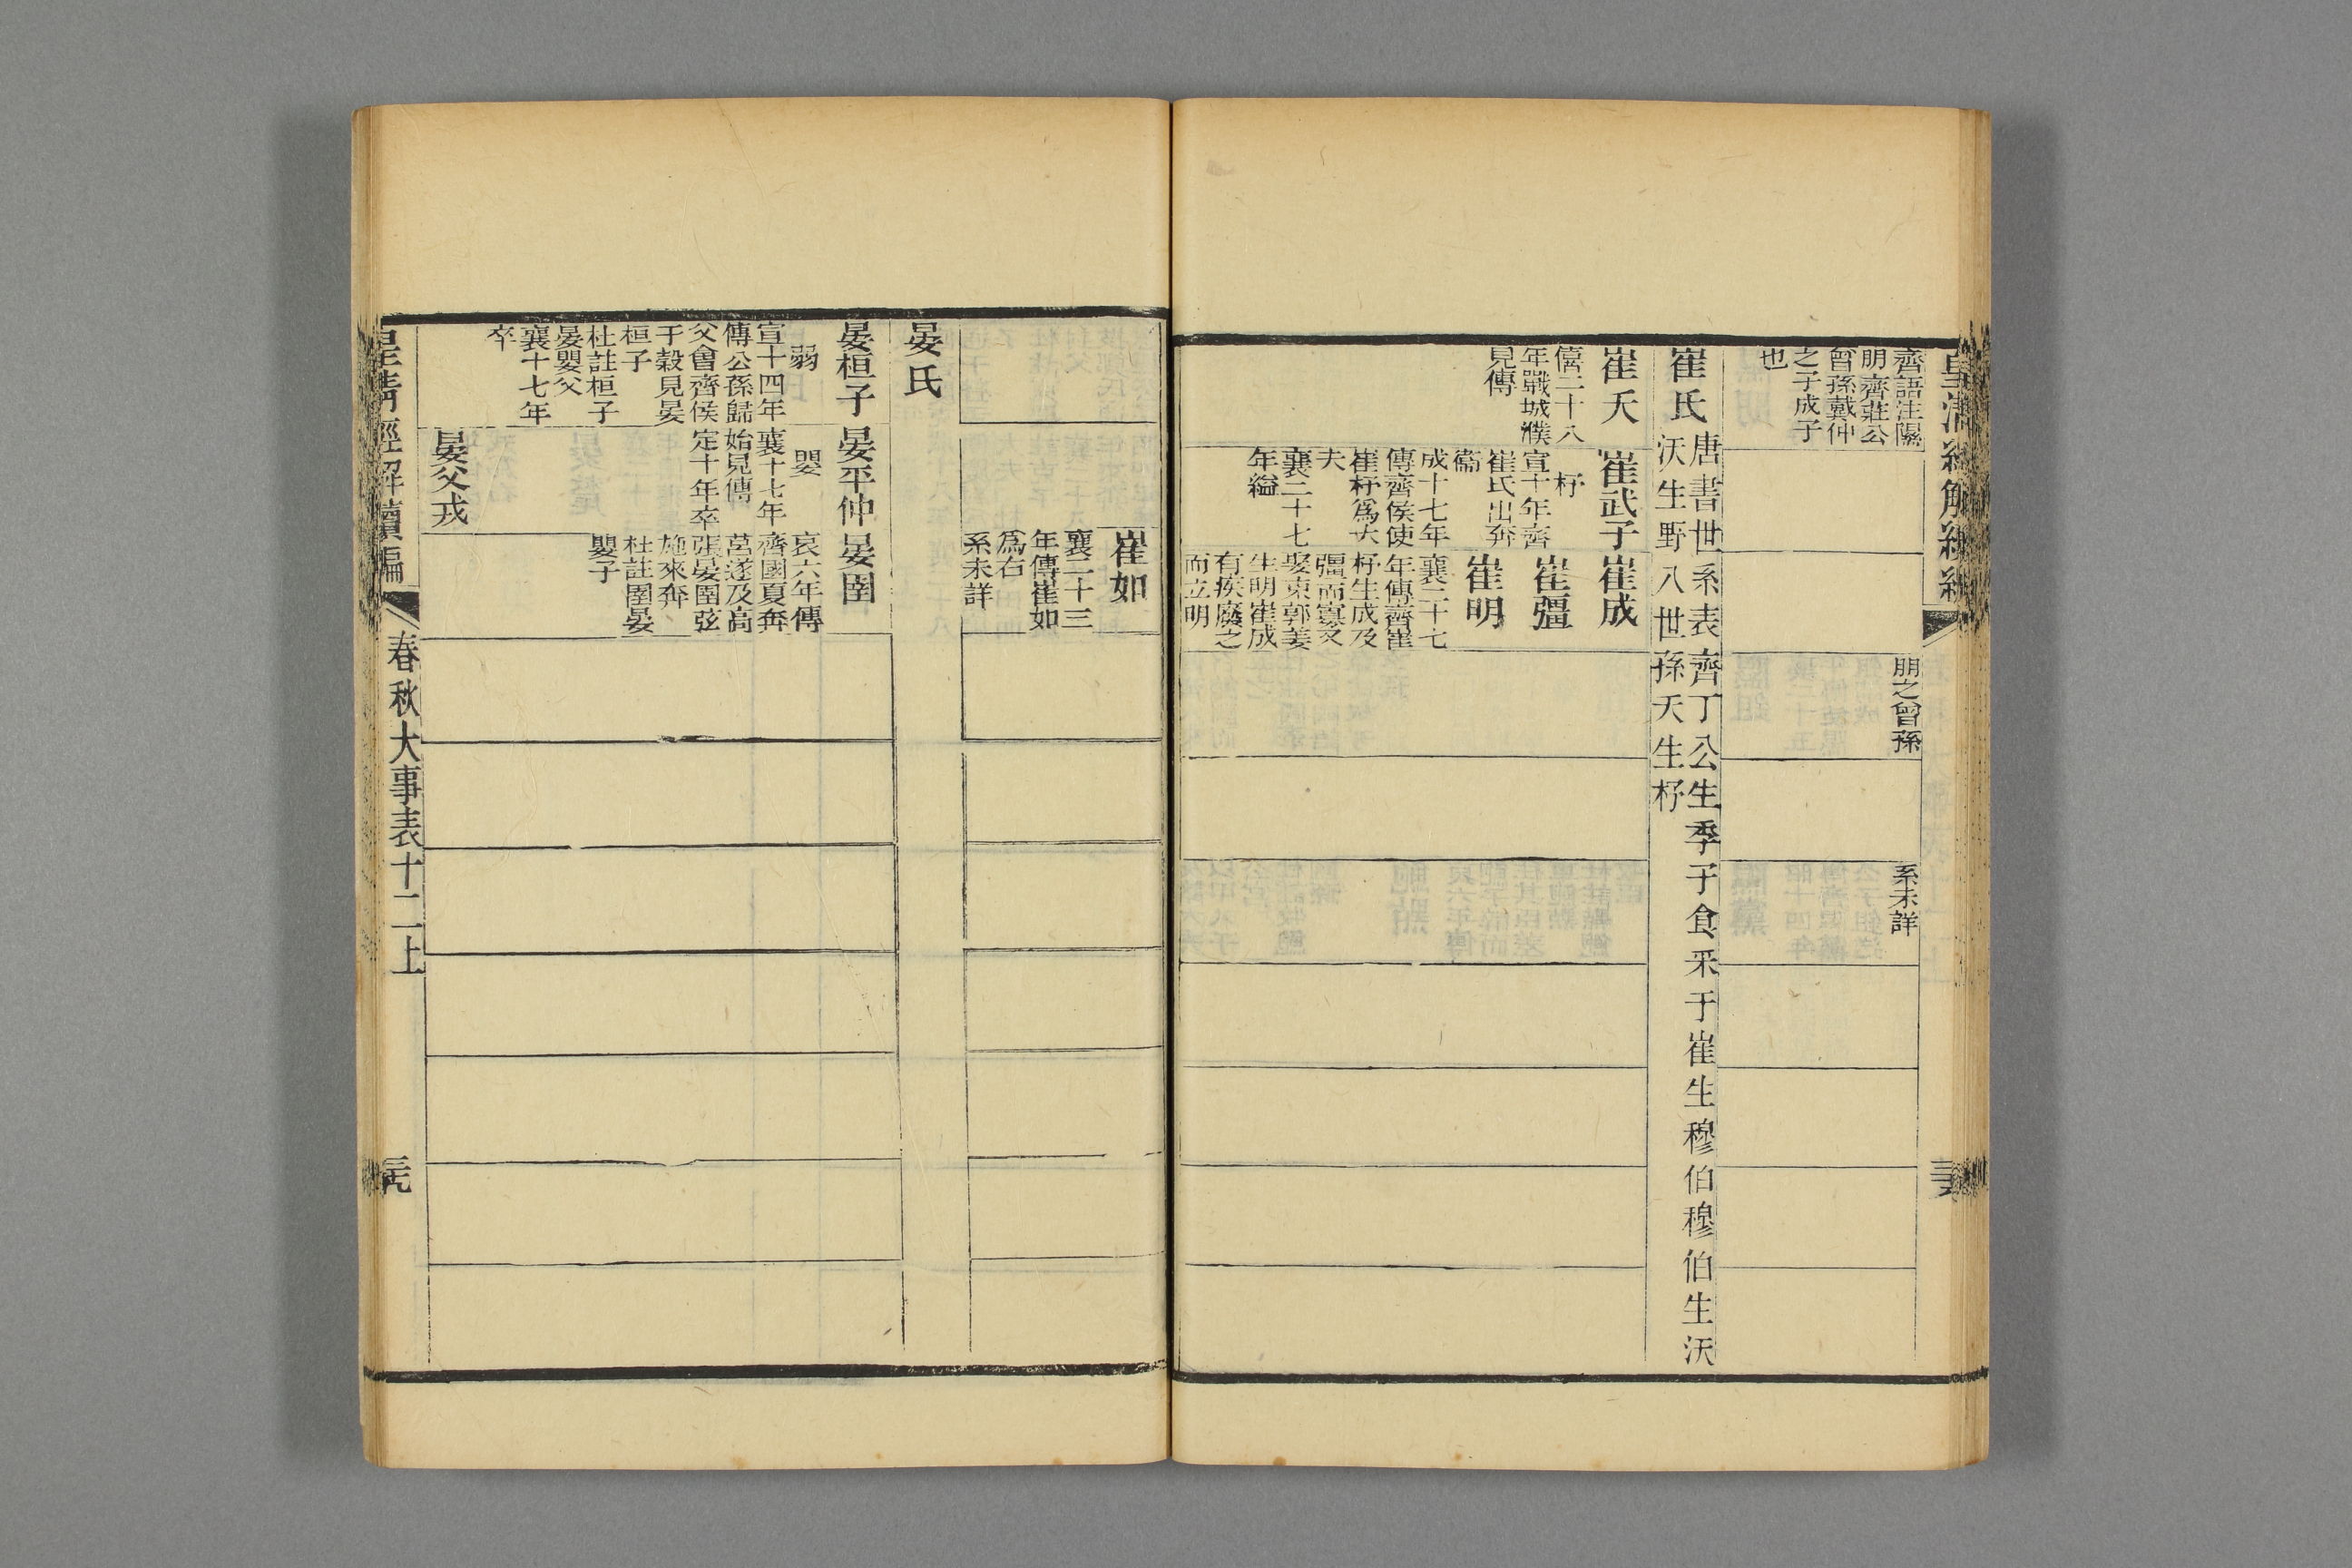 齊語注隰
朋齊莊公
曾孫戴仲
之子成子
也
朋之曾孫
系未詳
崔氏
唐書世系表齊丁公生季子食采于崔生穆伯穆伯生沃
沃生野八世孫夭生杼
崔夭
僖二十八
年戰城濮
見傳
崔武子
杼
宣十年齊
崔氏出奔
衞
成十七年
傳齊侯使
崔杼爲大
夫
襄二十七
年縊
崔成
崔彊
崔明
襄二十七
年傳齊崔
杼生成及
彊而寡又
娶東郭姜
生明崔成
有疾廢之
而立明
崔如
襄二十三
年傳崔如
爲右
系未詳
晏氏
晏桓子
弱
宣十四年
傳公孫歸
父會齊侯
于穀見晏
桓子
杜註桓子
晏嬰父
襄十七年
卒
晏平仲
嬰
襄十七年
始見傳
定十年卒
晏父戎
晏圉
哀六年傳
齊國夏奔
莒遂及高
張晏圉弦
施來奔
杜註圉晏
嬰子
皇清經解續編
春秋大事表十二上